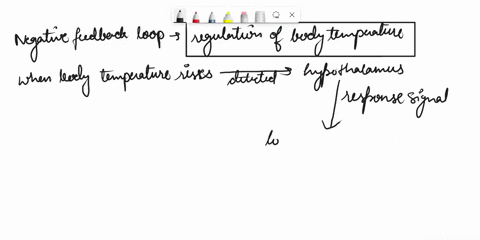 Negative feedback loop → regulation of body temperature
when body temperature rises detected → hypothalamus
response signal
lo